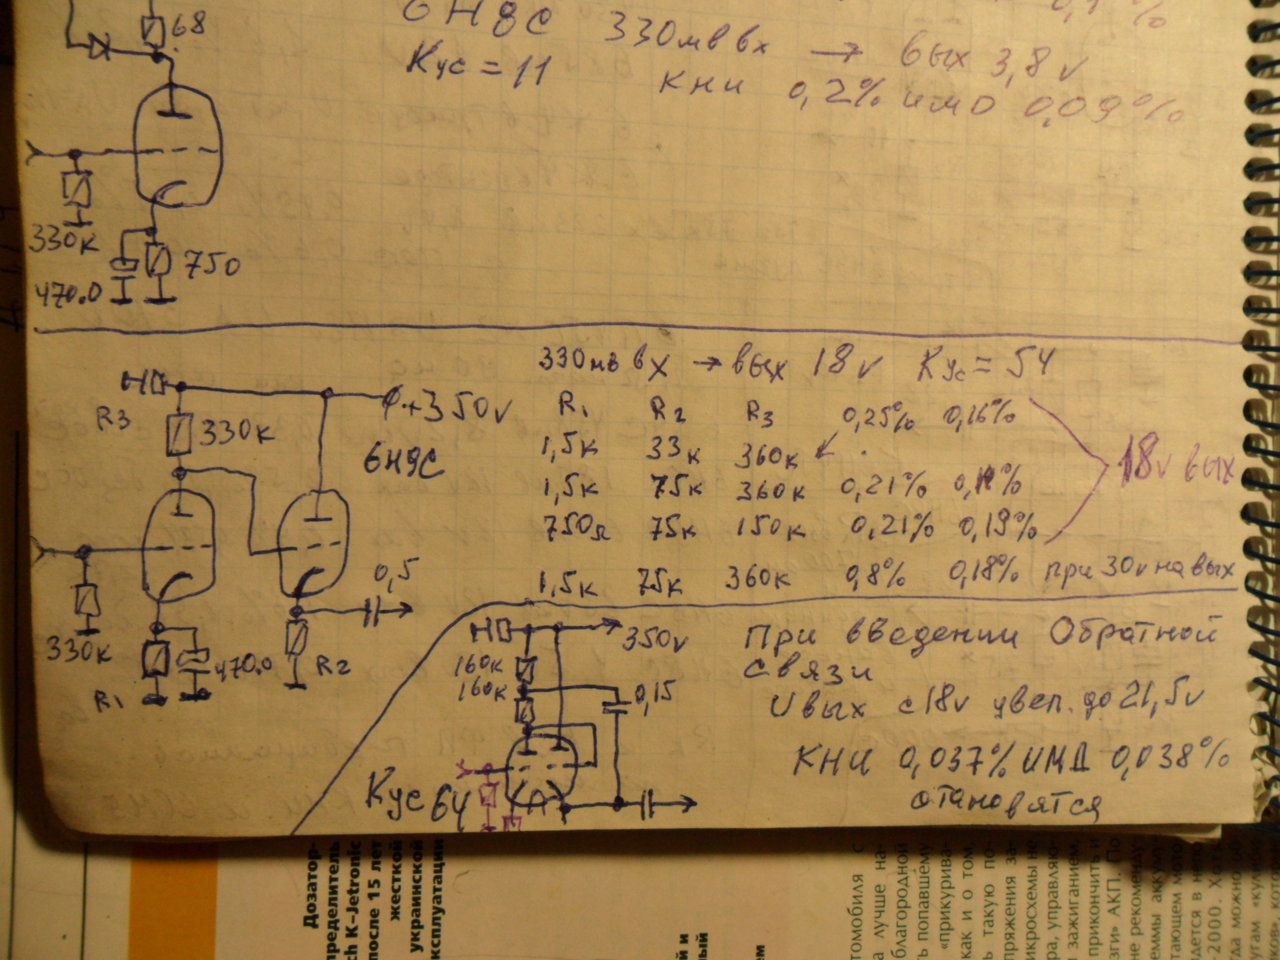 68
6Н8С 330мв вх → вых 3,8v
Кус = 11
КНИ 0,2% имд 0,09%
330к
750
470.0
330мв вх → вых 18v Кус = 54
R1 R2 R3 0,25% 0,16%
1,5к 33к 360к
1,5к 75к 360к 0,21%
750Ω 75к 150к 0,21% 0,19%
18v вых
1,5к 75к 360к 0,8% 0,18% при 30v на вых
R3
330к
+350v
6Н9С
0,5
330к
R1
470.0
R2
350v
160к
160к
0,15
Кус 64
При введении Обратной
связи
Uвых с 18v увел. до 21,5v
КНИ 0,037% ИМД 0,038%
становятся
Дозатор-
пределитель
ch K-Jetronic
после 15 лет
жесткой
украинской
ксплуатации
томобиля с
а лучше на-
благородной
ь попавшему
«прикурива-
как и о том,
ь такую по-
пряжения за-
икросхемы не
ра, управляю-
зажиганием,
прикончить и
зти» АКП. По
не рекоменду-